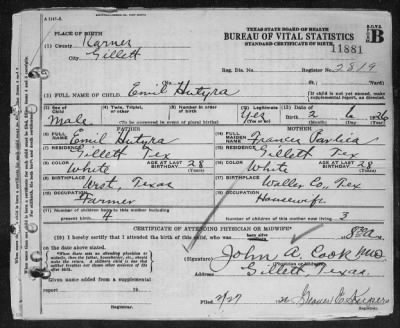 A 1147-5
TEXAS STATE BOARD OF HEALTH
BUREAU OF VITAL STATISTICS
STANDARD CERTIFICATE OF BIRTH
B
11881
PLACE OF BIRTH
(1) County Karnes
Gillett
Reg. Dis. No. Register No. 2819
St. (Ward)
(2) FULL NAME OF CHILD. Emil Hutyra
If child is not yet named, make supplemental report, as directed.
Sex of Child Male
(4) Twin, Triplet, or other
Number in order of birth
(To be answered in event of plural births)
(6) Legitimate Yes
(7) Date of Birth 2 6 1926
FATHER
FULL NAME Emil Hutyra
RESIDENCE Gillett Tex
COLOR White
AGE AT LAST BIRTHDAY 28 (Years)
BIRTHPLACE West, Texas
OCCUPATION Farmer
MOTHER
FULL MAIDEN NAME Frances Pavlica
RESIDENCE Gillett Tex
COLOR White
AGE AT LAST BIRTHDAY 28 (Years)
BIRTHPLACE Waller Co, Tex
OCCUPATION Housewife
Number of children born to this mother including present birth 4
Number of children of this mother now living 3
CERTIFICATE OF ATTENDING PHYSICIAN OR MIDWIFE*
I hereby certify that I attended the birth of this child, who was born alive
on the date above stated.
(Signature) John A. Cook MD
Gillett Texas.
Given name added from a supplemental
report 19
Registrar.
Filed 2/27 26
Registrar.